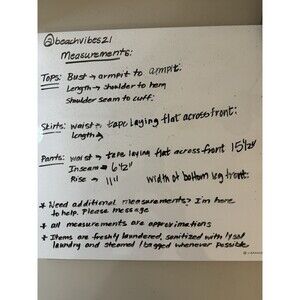 @beachvibes21
Measurements:
Tops: Bust → armpit to armpit:
Length → shoulder to hem
Shoulder seam to cuff:
Skirts: waist → tape laying flat across front:
length →
Pants: waist → tape laying flat across front 15 1/2"
Inseam → 6 1/2"
Rise → 11" Width of bottom leg front:
* Need additional measurements? I'm here
to help. Please message
* all measurements are approximations
* Items are freshly laundered, sanitized with lysol
laundry and steamed / bagged whenever possible